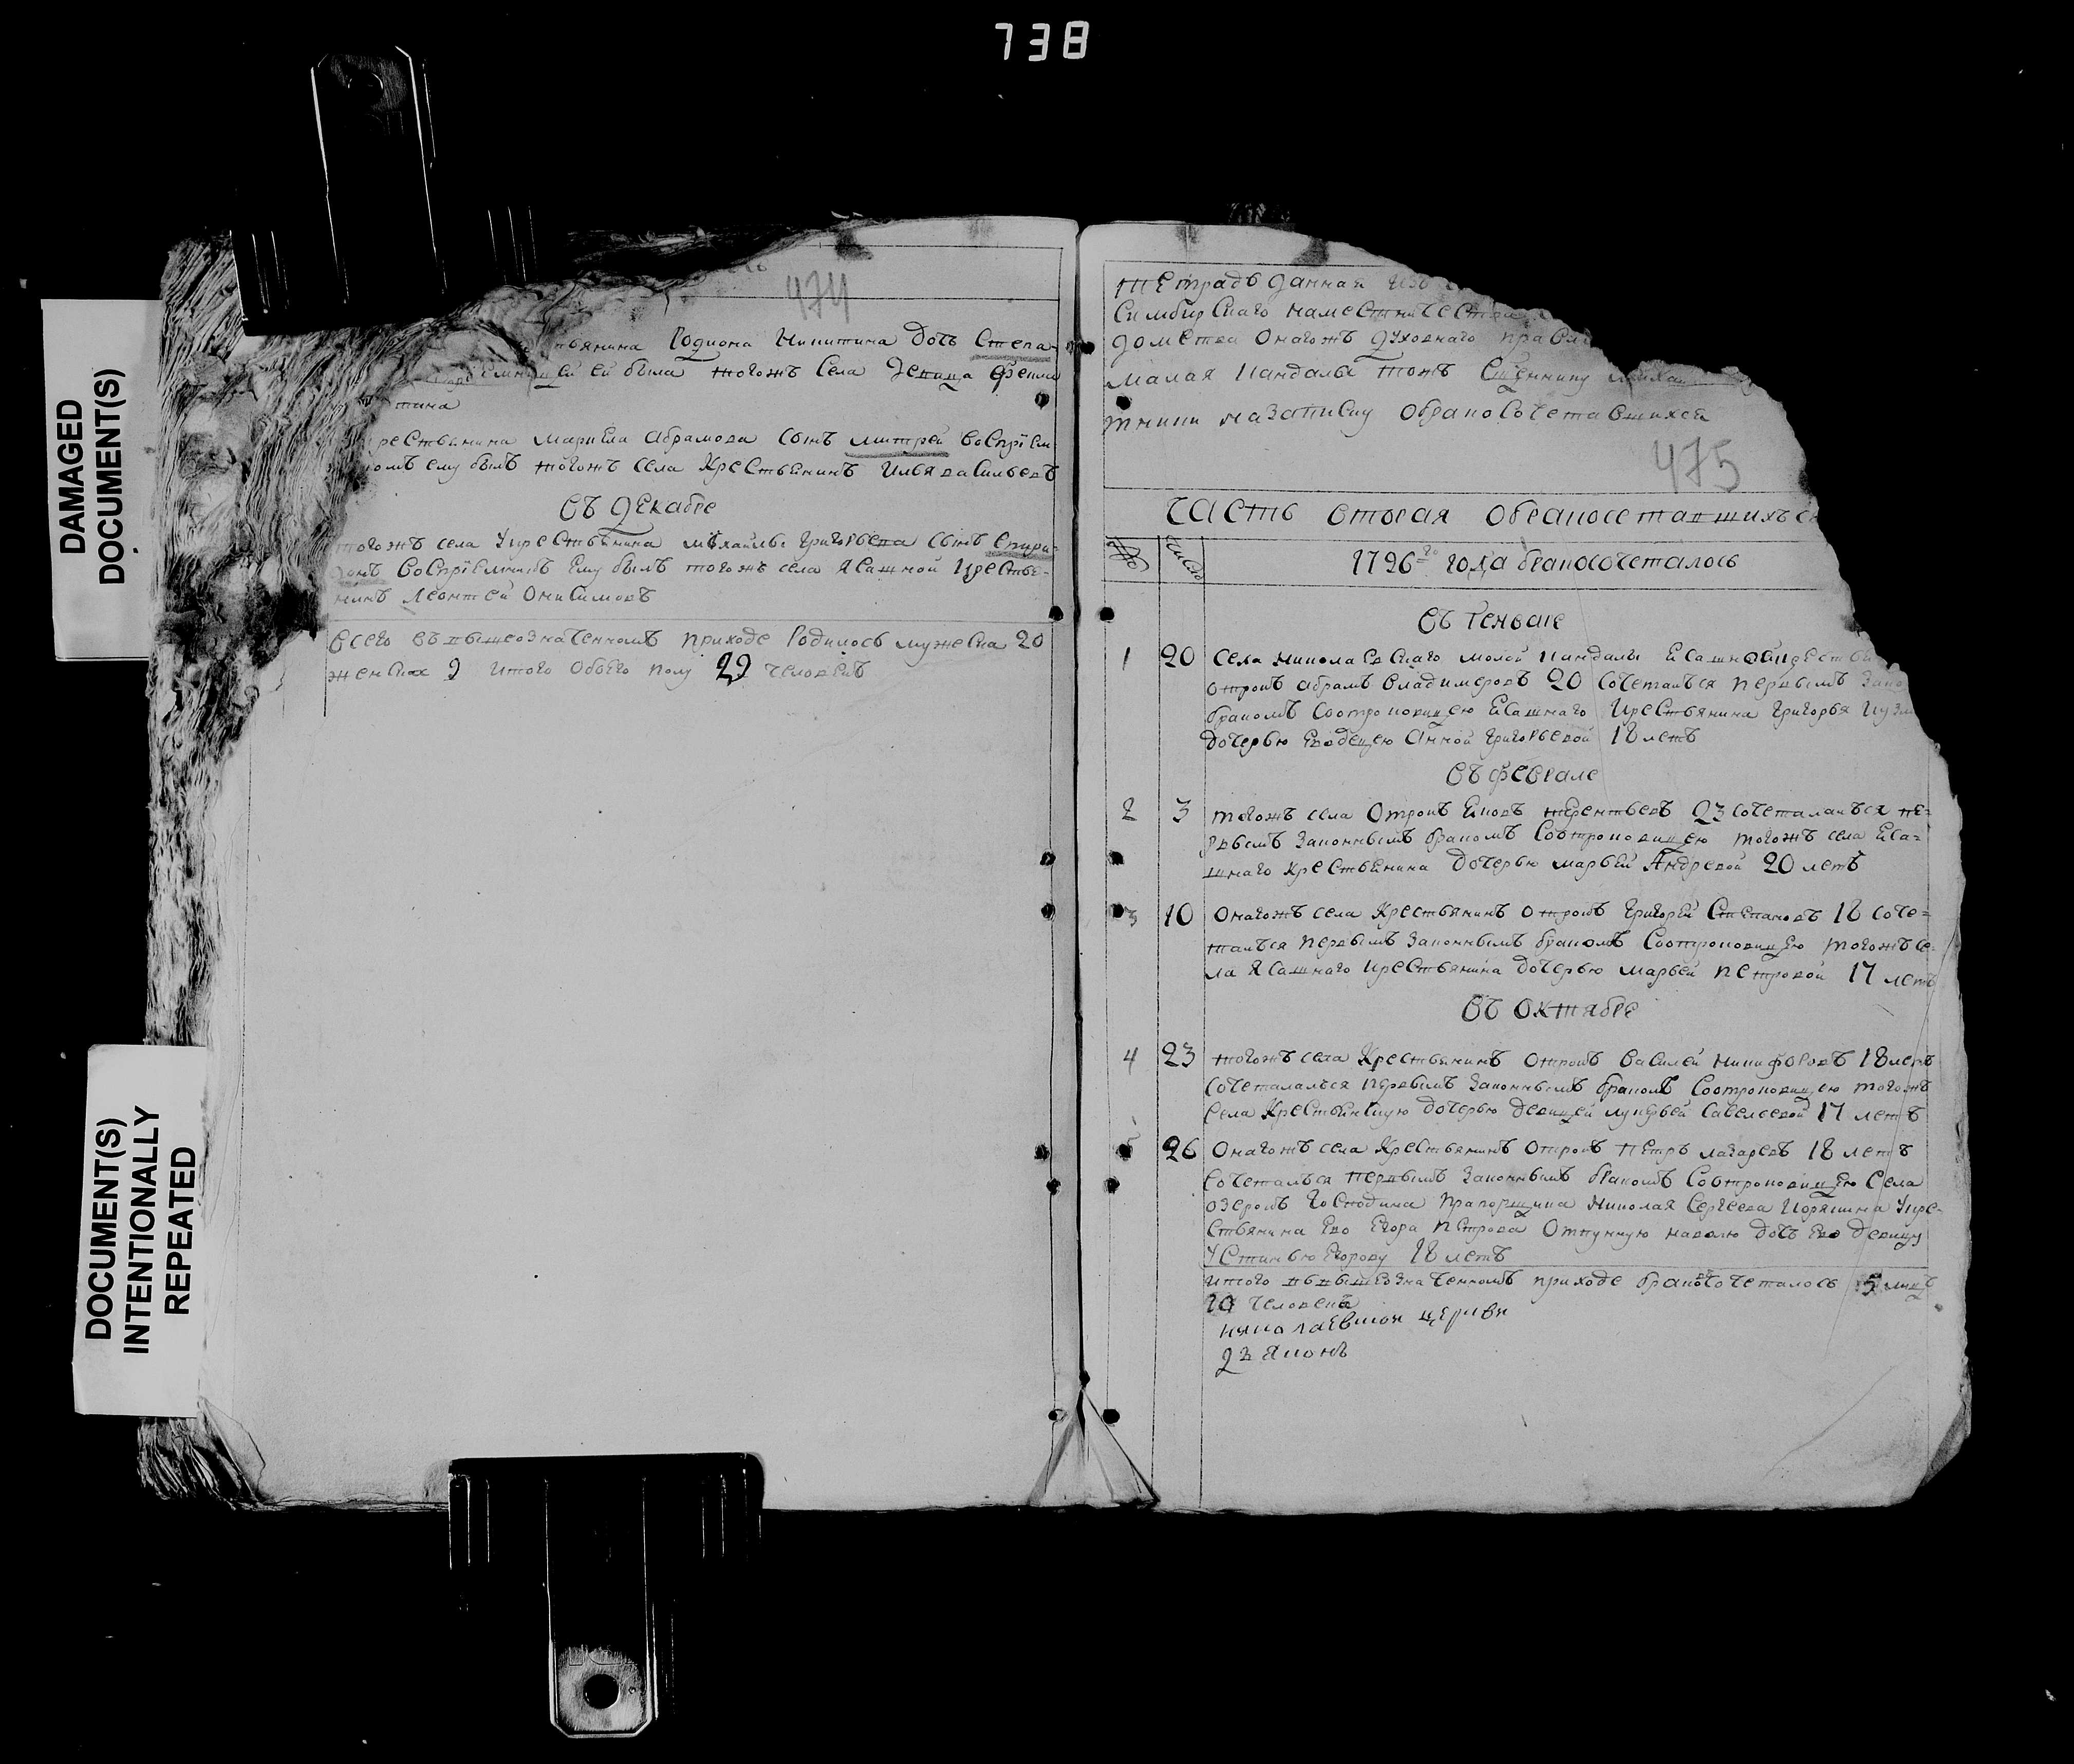 738
DAMAGED
DOCUMENT(S)
DOCUMENT(S)
INTENTIONALLY
REPEATED
474
Родиона Никитина дочь Степа-
ей была тогожъ села девица
крестьянина Абрамова сынъ митрей воспрiем
ему былъ тогожъ села крестьянинъ Илья васильевъ
въ декабре
тогожъ села крестьянина михайлы григорьева сынъ спири-
воспрiемникъ ему былъ тогожъ села ясашной крестья-
нинъ леонтей онисимовъ
всего въ вышеозначенномъ приходе родилось мужеска 20
женска 9 итого обоего полу 29 человекъ
тетрадь данная изъ
симбирскаго наместничест
домства онагожъ духовнаго правл
малая кандалы тожъ священнику
на записку о бракосочетавшихся
475
часть вторая о бракосетавшихъся
число
1796 го года бракосочеталось
въ генваре
1 20 села николаевскаго малой кандалы ясашной крестья
отрокъ абрамъ владимеровъ 20 сочетался первымъ зако
бракомъ со отроковицею ясашнаго крестьянина григорья кузм
дочерью анной григорьевой 18 летъ
въ феврале
2 3 тогожъ села отрокъ терентьевъ 23 сочеталалъся пе-
рвымъ законнымъ бракомъ со отроковицею тогожъ села яса-
шнаго крестьянина дочерью марьей Андревой 20 летъ
3 10 онагожъ села крестьянинъ отрокъ григорей степановъ 18 соче-
тался первымъ законнымъ бракомъ со отроковицею тогожъ се-
ла ясашнаго крестьянина дочерью марьей петровой 17 летъ
въ октябре
4 23 тогожъ села крестьянинъ отрокъ василей никифоровъ 18 летъ
сочеталалъся первымъ законнымъ бракомъ со отроковицею тогожъ
села крестьянскую дочерью девицей лукерьей савельевой 17 летъ
5 26 онагожъ села крестьянинъ отрокъ петръ лазаревъ 18 летъ
сочетался первымъ законнымъ бракомъ со отроковицею села
озерокъ господина прапорщика николая сергеева крестья-
ево егора петрова отпускную на волю дочь ево девицу
устинью егорову 18 летъ
итого в вышеозначенномъ приходе бракосочеталось 5
10 человека
николаевской церкви
дьяконъ